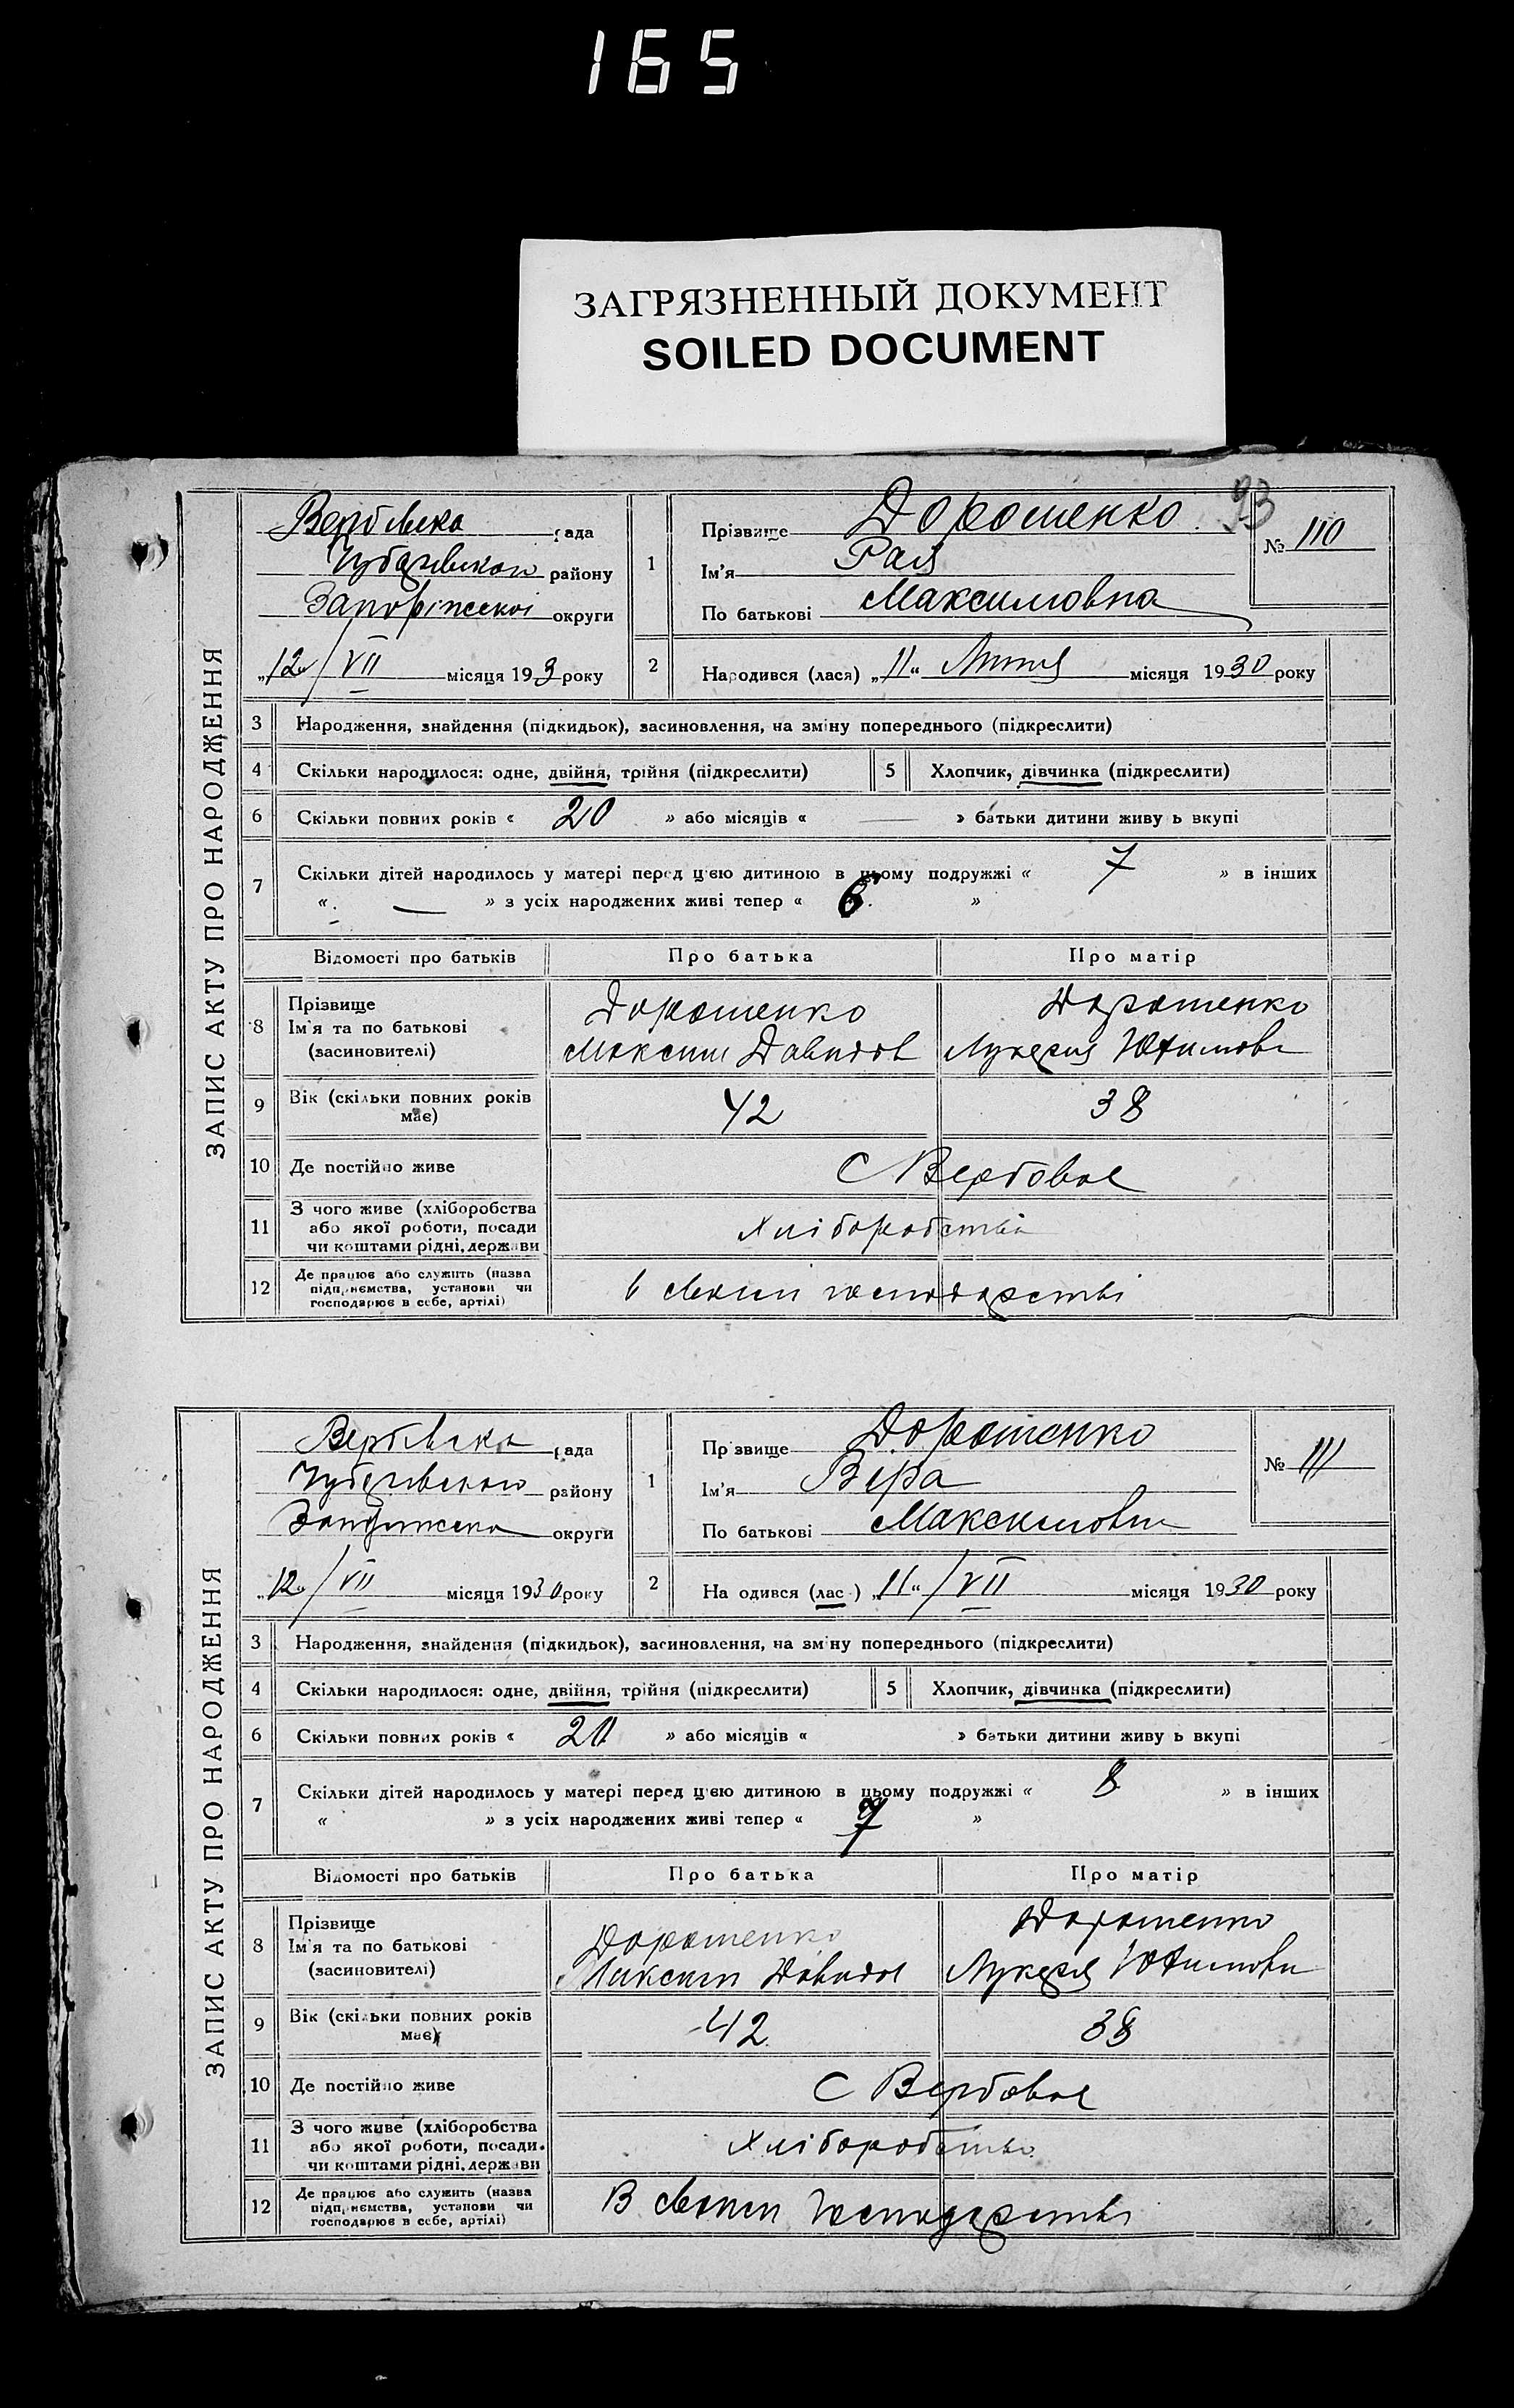 165
ЗАГРЯЗНЕННЫЙ ДОКУМЕНТ
SOILED DOCUMENT
93
ЗАПИС АКТУ ПРО НАРОДЖЕННЯ
рада
району
Запоріжської округи
„12“/VII місяця 193 року
1
Прізвище Дорошенко
Ім'я Рая
По батькові Максимовна
№ 110
2
Народився (лася) „11“ Липня місяця 1930 року
3 Народження, знайдення (підкидьок), засиновлення, на зміну попереднього (підкреслити)
4 Скільки народилося: одне, двійня, трійня (підкреслити)
5 Хлопчик, дівчинка (підкреслити)
6 Скільки повних років « 20 » або місяців « — » батьки дитини живуть вкупі
7 Скільки дітей народилось у матері перед цією дитиною в цьому подружжі « 7 » в інших
« — » з усіх народжених живі тепер « 6 »
Відомості про батьків Про батька Про матір
8 Прізвище
Ім'я та по батькові
(засиновителі)
Дорошенко
Максим Давидов
Дорошенко
Лукерия Юхимовн
9 Вік (скільки повних років
має)
42 38
10 Де постійно живе С Вербовое
11 З чого живе (хліборобства
або якої роботи, посади
чи коштами рідні, держави
Хліборобства
12 Де працює або служить (назва
підприємства, установи чи
господарює в себе, артілі)
в своим господарстві
ЗАПИС АКТУ ПРО НАРОДЖЕННЯ
рада
району
округи
„12“/VII місяця 1930 року
1
Прізвище Дорошенко
Ім'я Віра
По батькові Максимовн
№ 111
2
Народився (лась) „11“/VII місяця 1930 року
3 Народження, знайдення (підкидьок), засиновлення, на зміну попереднього (підкреслити)
4 Скільки народилося: одне, двійня, трійня (підкреслити)
5 Хлопчик, дівчинка (підкреслити)
6 Скільки повних років « 20 » або місяців « » батьки дитини живуть вкупі
7 Скільки дітей народилось у матері перед цією дитиною в цьому подружжі « 8 » в інших
« » з усіх народжених живі тепер « 7 »
Відомості про батьків Про батька Про матір
8 Прізвище
Ім'я та по батькові
(засиновителі)
Дорошенко
Максим Давидов
Дорошенко
Лукерия Юхимовн
9 Вік (скільки повних років
має)
42 38
10 Де постійно живе С Вербовое
11 З чого живе (хліборобства
або якої роботи, посади
чи коштами рідні, держави
Хліборобство
12 Де працює або служить (назва
підприємства, установи чи
господарює в себе, артілі)
В своим господарстві